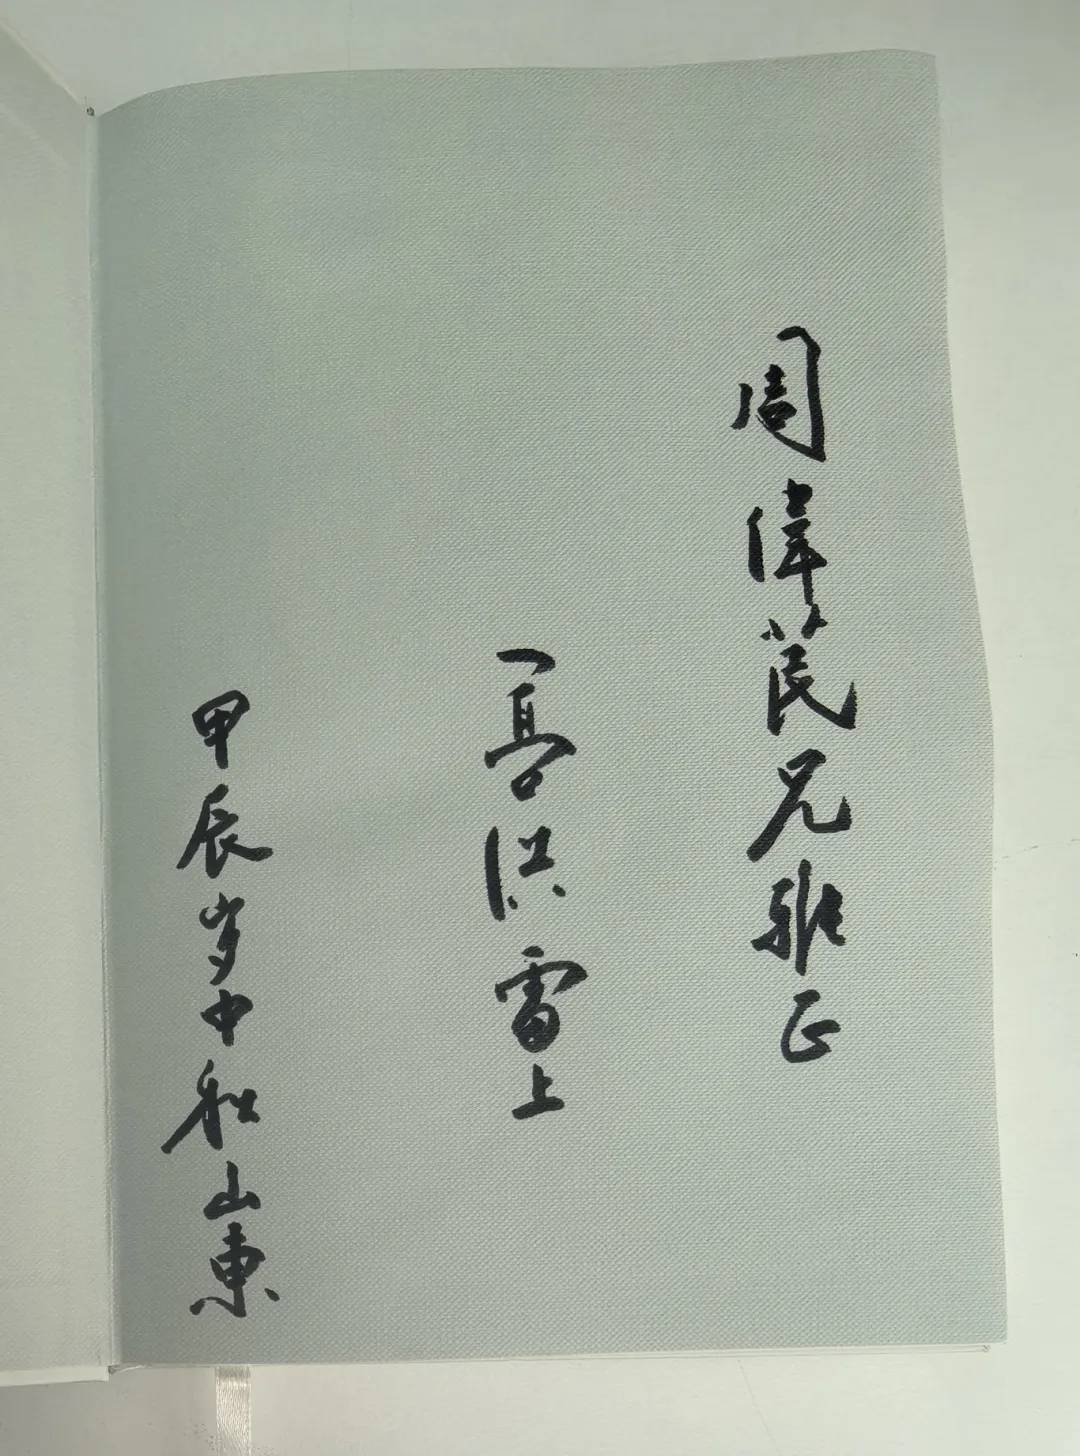 周偉苠兄雅正
高洪雷上
甲辰岁中秋山東